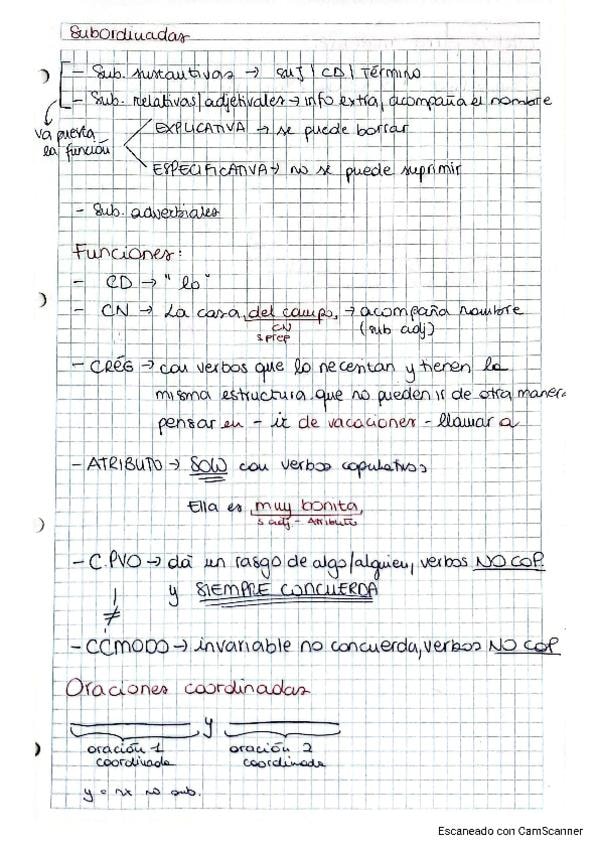 Subordinadas
- Sub. sustantivas → SUJ | CD | Término
- Sub. relativas/adjetivales → info extra, acompaña el nombre
va puesta la función
EXPLICATIVA → se puede borrar
ESPECIFICATIVA → no se puede suprimir
- Sub. adverbiales
Funciones:
- CD → "lo"
- CN → La casa del campo, → acompaña nombre
CN
S prep
(sub adj)
- CRÉG → con verbos que lo necesitan y tienen la
misma estructura que no pueden ir de otra manera
pensar en - ir de vacaciones - llamar a
- ATRIBUTO → SOLO con verbos copulativos
Ella es muy bonita,
S adj - Atributo
- C.PVO → da un rasgo de algo/alguien, verbos NO COP.
y SIEMPRE CONCUERDA
≠
- CCMODO → invariable no concuerda, verbos NO COP
Oraciones coordinadas
y
oración 1 coordinada
oración 2 coordinada
y = nx no sub.
Escaneado con CamScanner